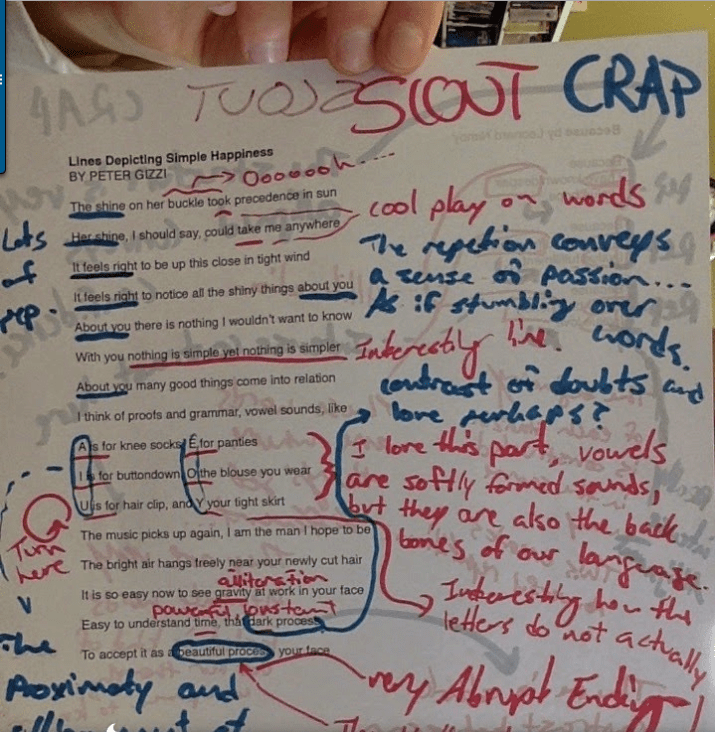 SCOUT CRAP
Lines Depicting Simple Happiness
BY PETER GIZZI
Ooooooh....
The shine on her buckle took precedence in sun
cool play on words
Her shine, I should say, could take me anywhere
It feels right to be up this close in tight wind
It feels right to notice all the shiny things about you
About you there is nothing I wouldn't want to know
With you nothing is simple yet nothing is simpler
About you many good things come into relation
I think of proofs and grammar, vowel sounds, like
A is for knee socks, E for panties
I is for buttondown, O the blouse you wear
U is for hair clip, and Y your tight skirt
The music picks up again, I am the man I hope to be
The bright air hangs freely near your newly cut hair
It is so easy now to see gravity at work in your face
Easy to understand time, that dark process
To accept it as a beautiful process, your face
Lots
of
rep.
The repetion conveys
a sense of passion...
As if stumbling over
words.
Interestily line.
contrast of doubts and
love perhaps?
I love this part, vowels
are softly formed sounds,
but they are also the back
bones of our language.
Interesting how the
letters do not actually
Turn
here
alliteration
powerful constant
very Abrupt Ending!
The
Proximaty and